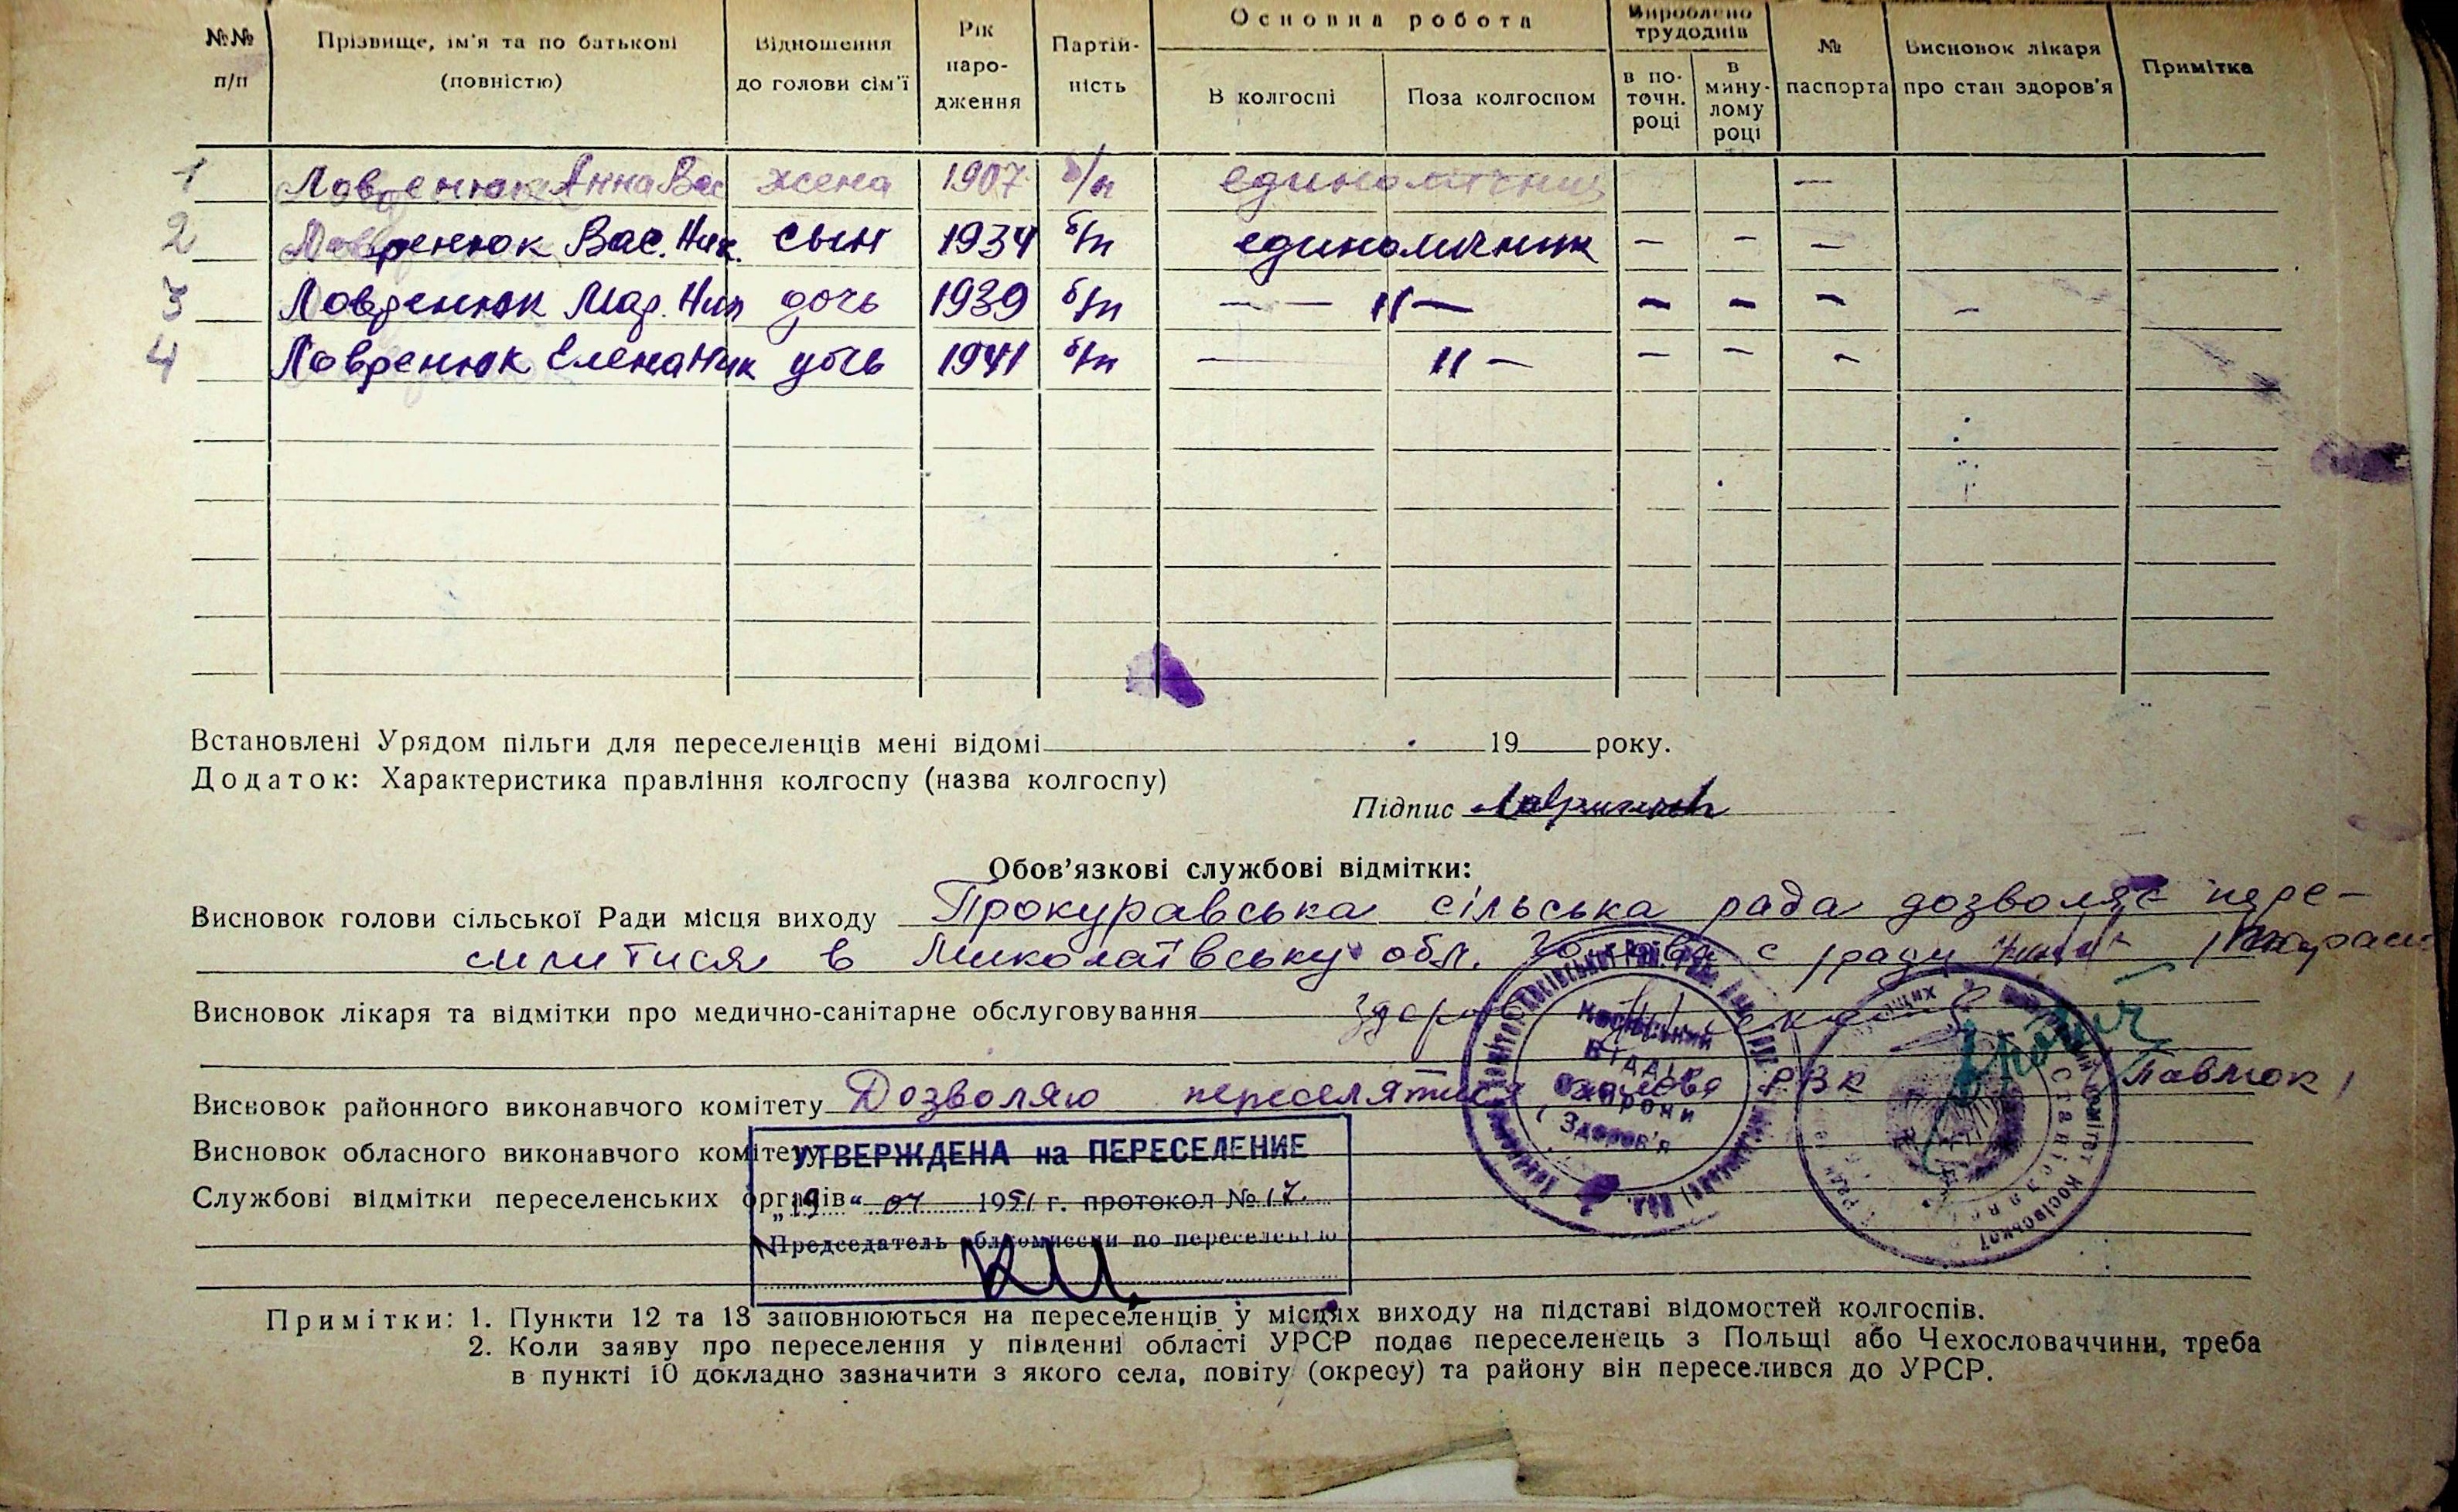 №№ п/п | Прізвище, ім'я та по батькові (повністю) | Відношення до голови сім'ї | Рік народження | Партійність | Основна робота | В колгоспі | Поза колгоспом | Вироблено трудоднів | в поточн. році | в минулому році | № паспорта | Висновок лікаря про стан здоров'я | Примітка
1 Лавренюк Анна Вас жена 1907 б/п единоличниц —
2 Лавренюк Вас. Ник. сын 1934 б/п единоличник — — —
3 Лавренюк Мар. Ник дочь 1939 б/п — — 11 — — — — —
4 Лавренюк Елена Ник дочь 1941 б/п — 11 — — — —
Встановлені Урядом пільги для переселенців мені відомі 19 року.
Додаток: Характеристика правління колгоспу (назва колгоспу)
Підпис
Обов'язкові службові відмітки:
Висновок голови сільської Ради місця виходу Прокуравська сільська рада дозволяє пере-
силитися в Миколаївську обл. Голова с/ради
Висновок лікаря та відмітки про медично-санітарне обслуговування
Висновок районного виконавчого комітету Дозволяю переселятися Голова РВК Павлюк
Висновок обласного виконавчого комітету
Службові відмітки переселенських органів
УТВЕРЖДЕНА на ПЕРЕСЕЛЕНИЕ
„19“ 07 1951 г. протокол № 17.
Председатель облкомиссии по переселению
Косівський
Відділ
Охорони
Здоров'я
Примітки: 1. Пункти 12 та 13 заповнюються на переселенців у місцях виходу на підставі відомостей колгоспів.
2. Коли заяву про переселення у південні області УРСР подає переселенець з Польщі або Чехословаччини, треба
в пункті 10 докладно зазначити з якого села, повіту (окресу) та району він переселився до УРСР.